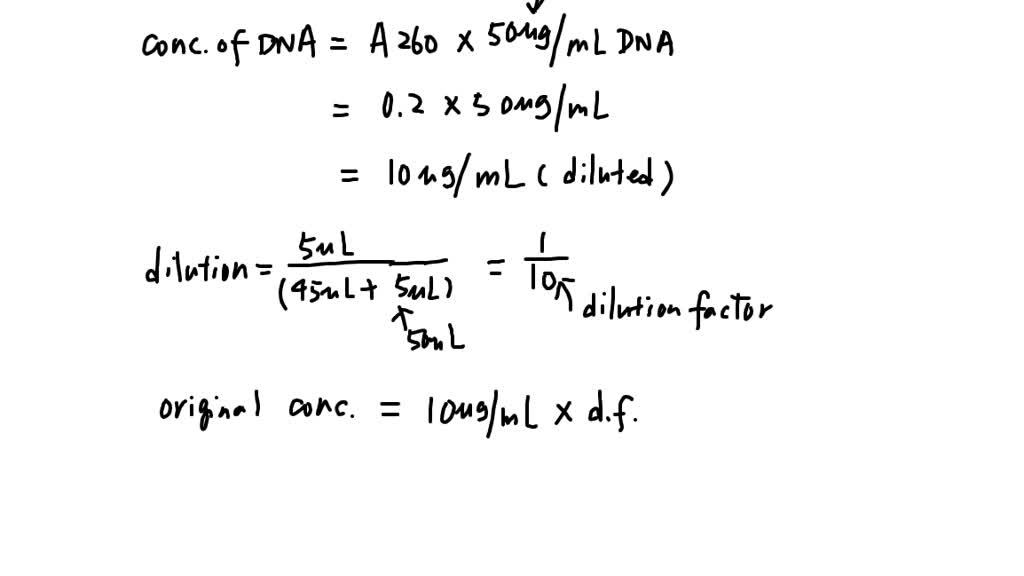 conc. of DNA = A260 x 50ug/mL DNA
= 0.2 x 50ug/mL
= 10ug/mL (diluted)
dilution = 5uL / (45uL + 5uL) = 1/10 dilution factor
50uL
original conc. = 10ug/mL x d.f.